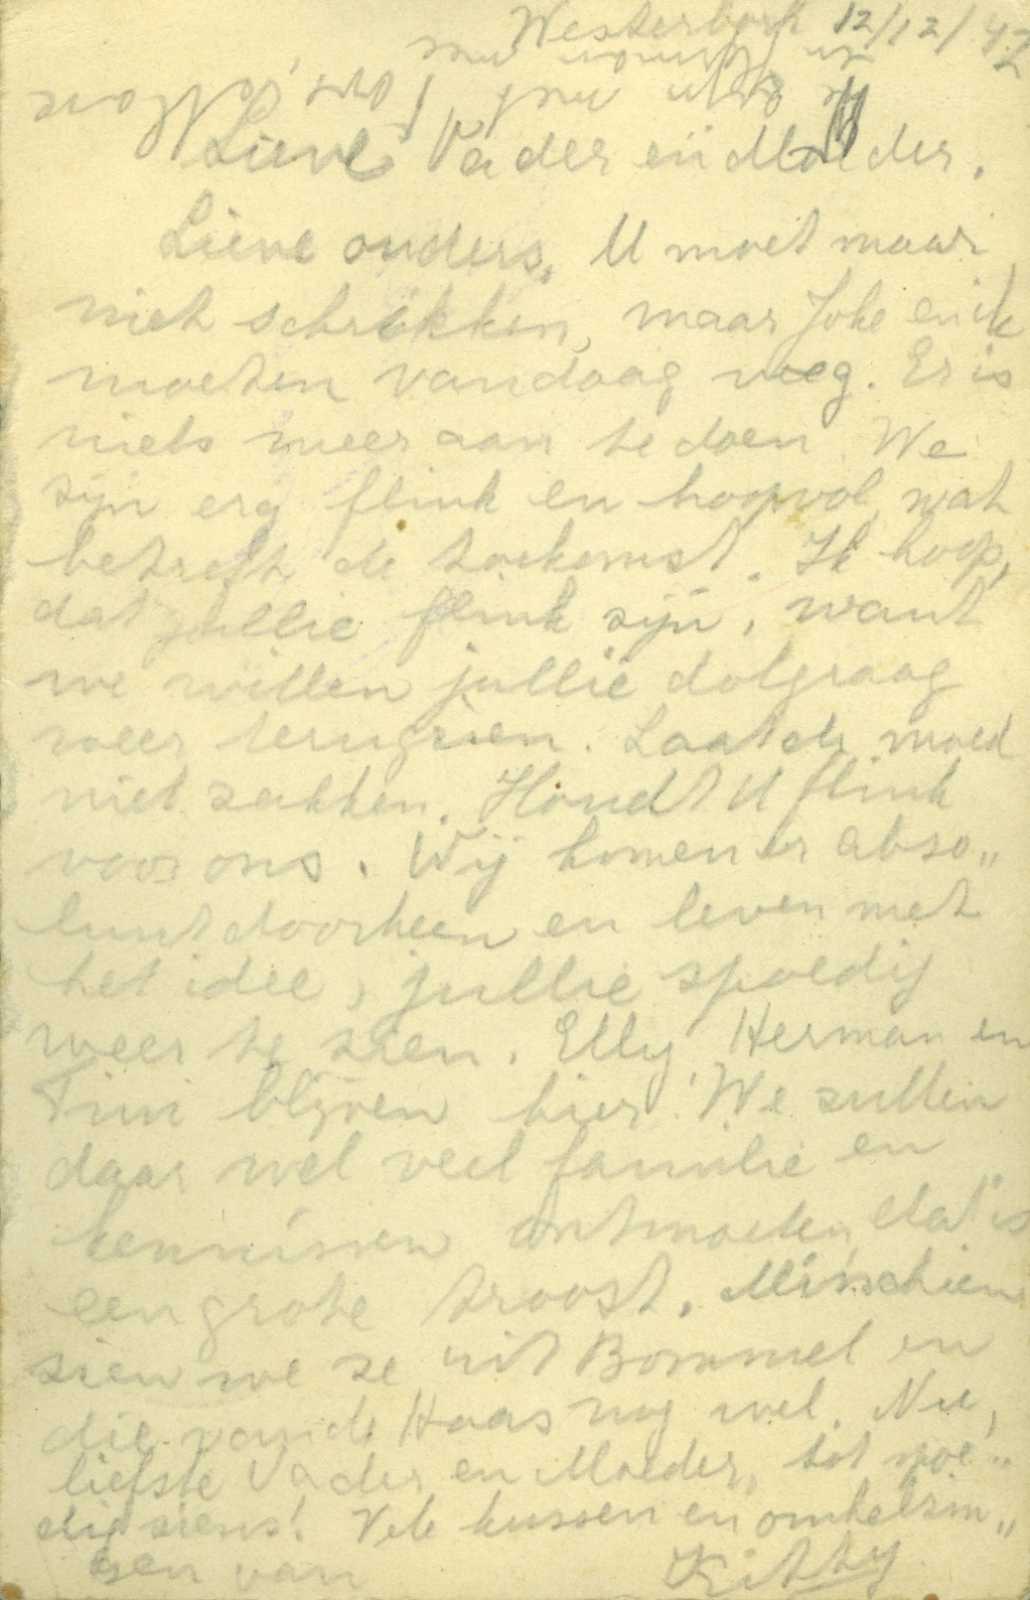 Westerbork 12/12/42
Lieve Vader en Moeder.
Lieve ouders, U moet maar
niet schrikken, maar Joke en ik
moeten vandaag weg. Er is
niets meer aan te doen. We
zijn erg flink en hoopvol, wat
betreft de toekomst. Ik hoop,
dat jullie flink zijn, want
we willen jullie dolgraag
weer terugzien. Laat de moed
niet zakken. Houdt U flink
voor ons. Wij komen er abso„
luut doorheen en leven met
het idee, jullie spoedig
weer te zien. Elly Herman en
Tini blijven hier. We zullen
daar wel veel familie en
kennissen ontmoeten, dat is
een grote troost. Misschien
zien we ze uit Bommel en
die van de Haas nog wel. Nu,
liefste Vader en Moeder, tot spoe„
dig ziens! Vele kussen en omhelzin„
gen van Kitty